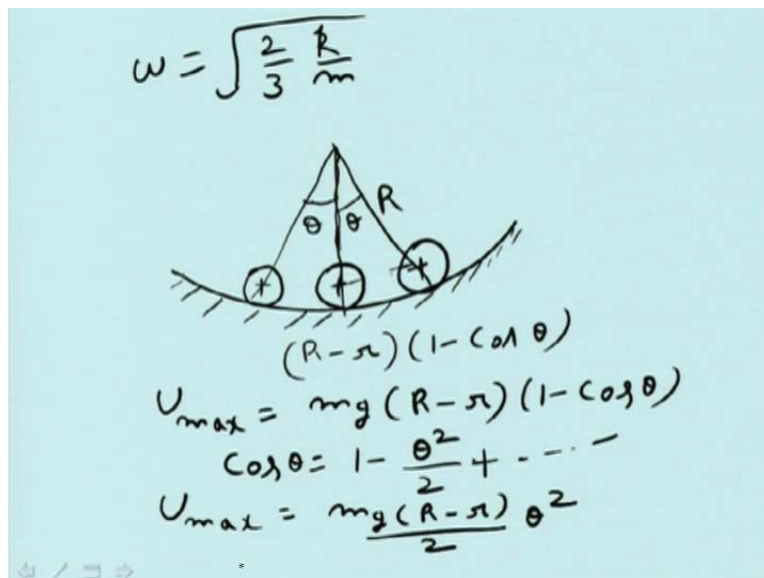 ω = √(2/3 k/m)
θ θ R
(R-r)(1-Cosθ)
Umax = mg(R-r)(1-Cosθ)
Cosθ = 1 - θ²/2 + ----
Umax = mg(R-r)/2 θ²